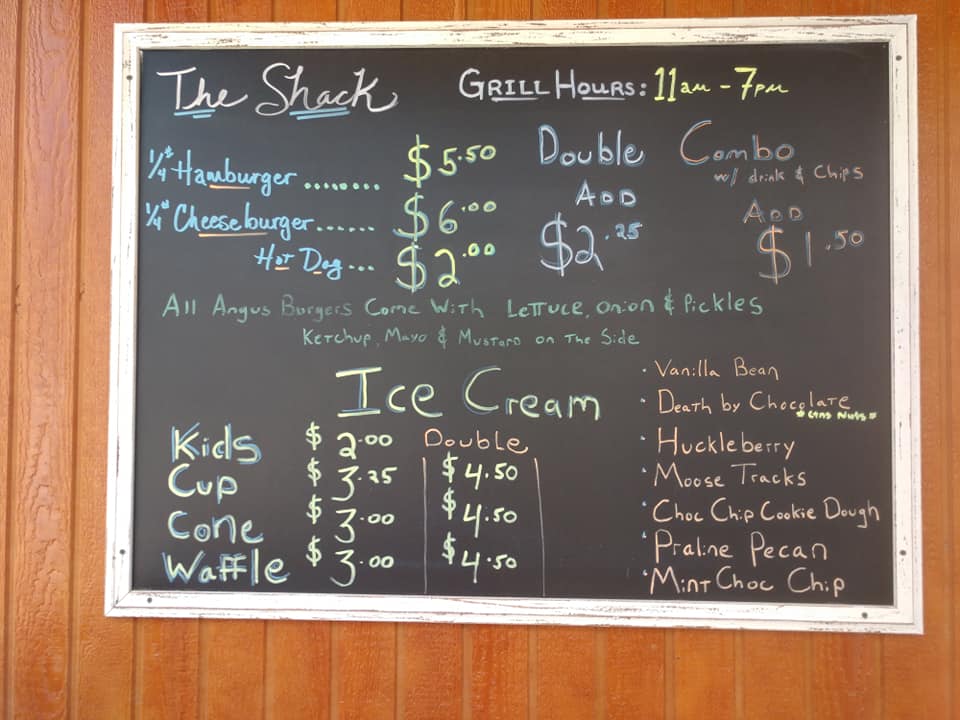 The Shack
GRILL HOURS: 11am - 7pm
1/4# Hamburger ........ $5.50
1/4# Cheeseburger...... $6.00
Hot Dog... $2.00
Double
ADD
$2.25
Combo
w/ drink & Chips
ADD
$1.50
All Angus Burgers Come With Lettuce, Onion & Pickles
Ketchup, Mayo & Mustard on The Side
Ice Cream
Double
Kids $2.00
Cup $3.25 $4.50
Cone $3.00 $4.50
Waffle $3.00 $4.50
• Vanilla Bean
• Death by Chocolate
• Huckleberry
• Moose Tracks
• Choc Chip Cookie Dough
• Praline Pecan
• Mint Choc Chip